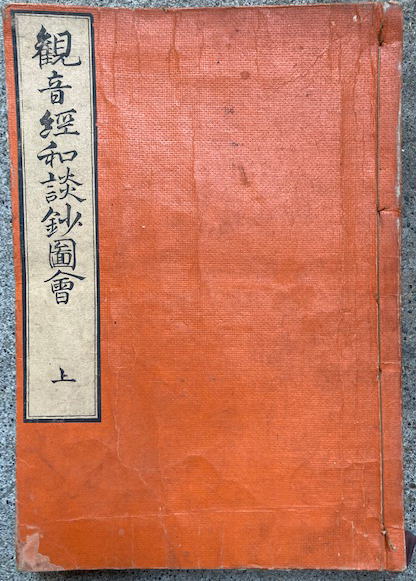 観音經和談鈔圖會
上